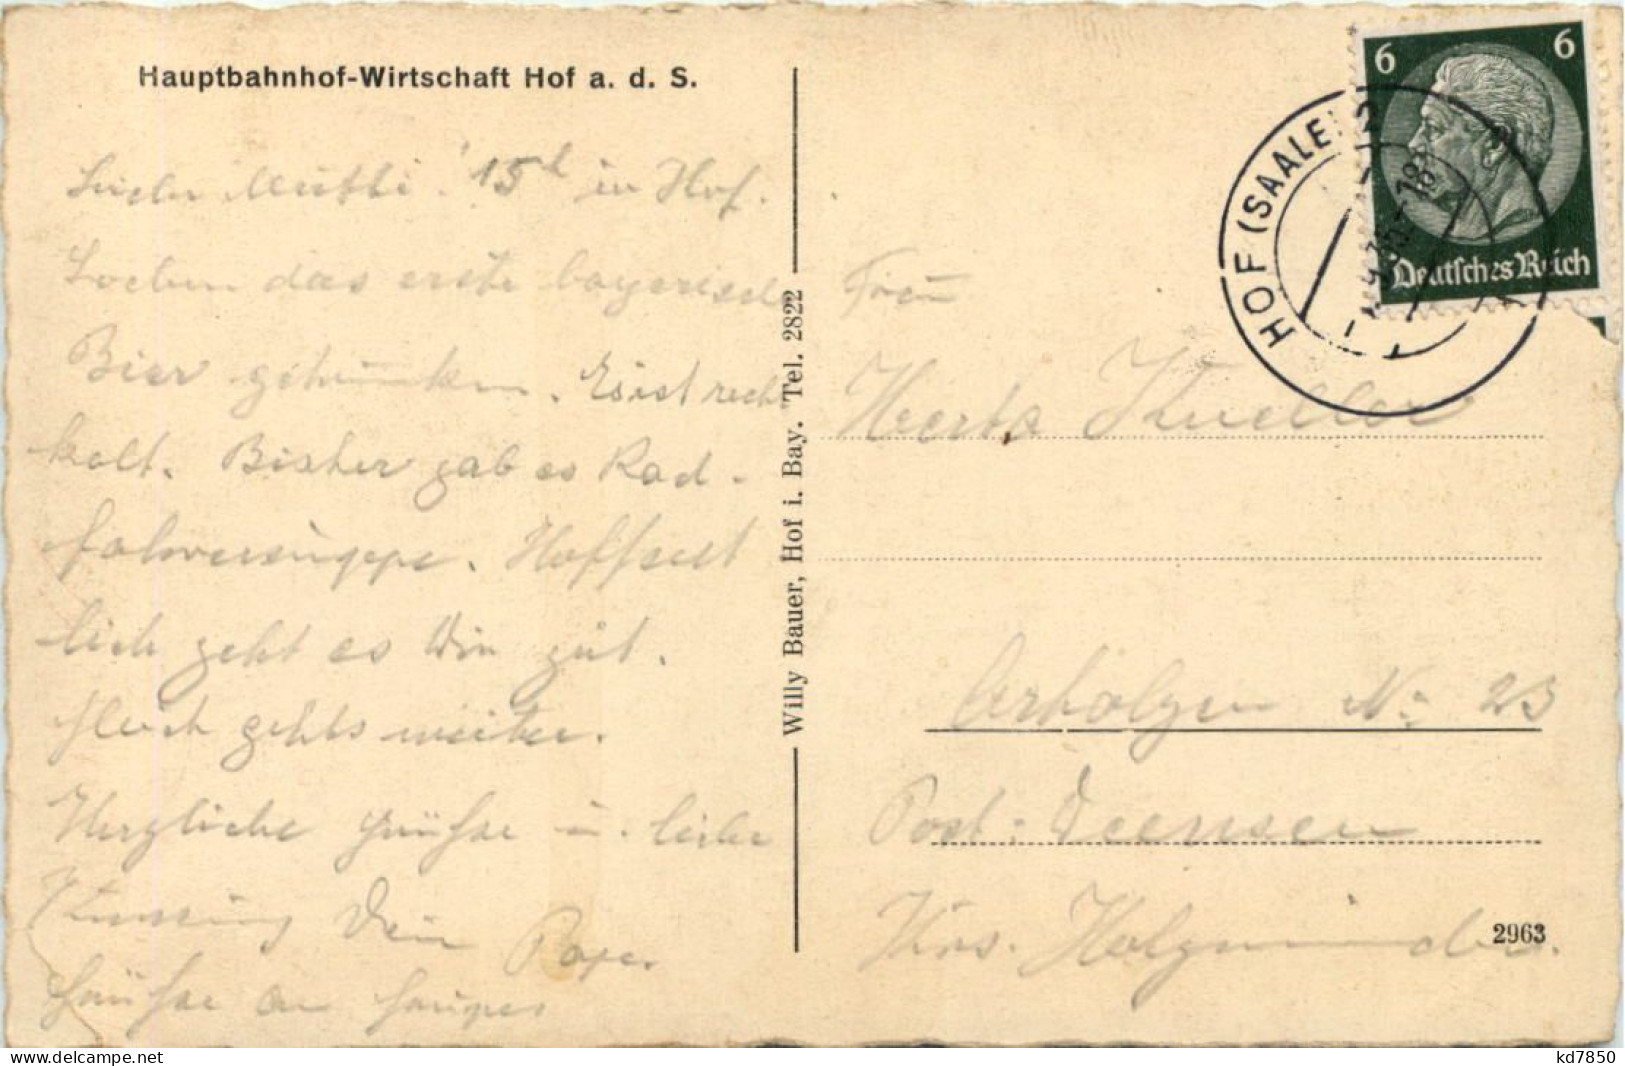 Hauptbahnhof-Wirtschaft Hof a. d. S.
Liebe Mutti! 15h in Hof.
Soeben das erste bayerische
Bier getrunken. Es ist recht
kalt. Bisher gab es Rad-
lich geht es Dir gut.
Gleich gehts weiter.
Herzliche Grüße u. lieben
Dein Papa.
Grüße an
Willy Bauer, Hof i. Bay. Tel. 2822
HOF (SAALE) 2
6 6
Deutsches Reich
Frau
Herta
Arholzen Nr 23
Post: Deensen
Krs. Holzminden.
2963
delcampe.net
kd7850